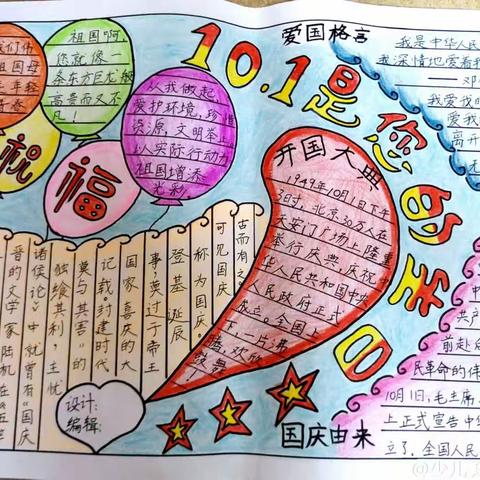 爱国格言
10.1是您的生日
我们伟
祖国母
年轻
祝福
祖国啊
您就像一
条东方巨龙般
高贵而又不
凡！
从我做起
爱护环境，珍惜
资源，文明举止
以实际行动为
祖国增添
光彩
开国大典
1949年10月1日下午
3时，北京30万人在
天安门广场上隆重
举行庆典，庆祝中
华人民共和国中央
人民政府正式
成立。全国上
下一片沸
腾，欢欣
鼓舞！
晋的文学家陆机在《五等
诸侯论》中就曾有“国庆
独飨其利，主忧
莫与其害”的
记载。封建时代
国家喜庆的大
事，莫过于帝王
登基 诞辰
称为国庆
可见国庆
古而有之。
设计：
编辑：
国庆由来
我是中华人民
我深情地爱着我
——邓
我爱我的
爱我
离开
无
中
共产
前赴后
民革命的伟
10月1日，毛主席
上正式宣告中华
立了，全国人民
@少儿